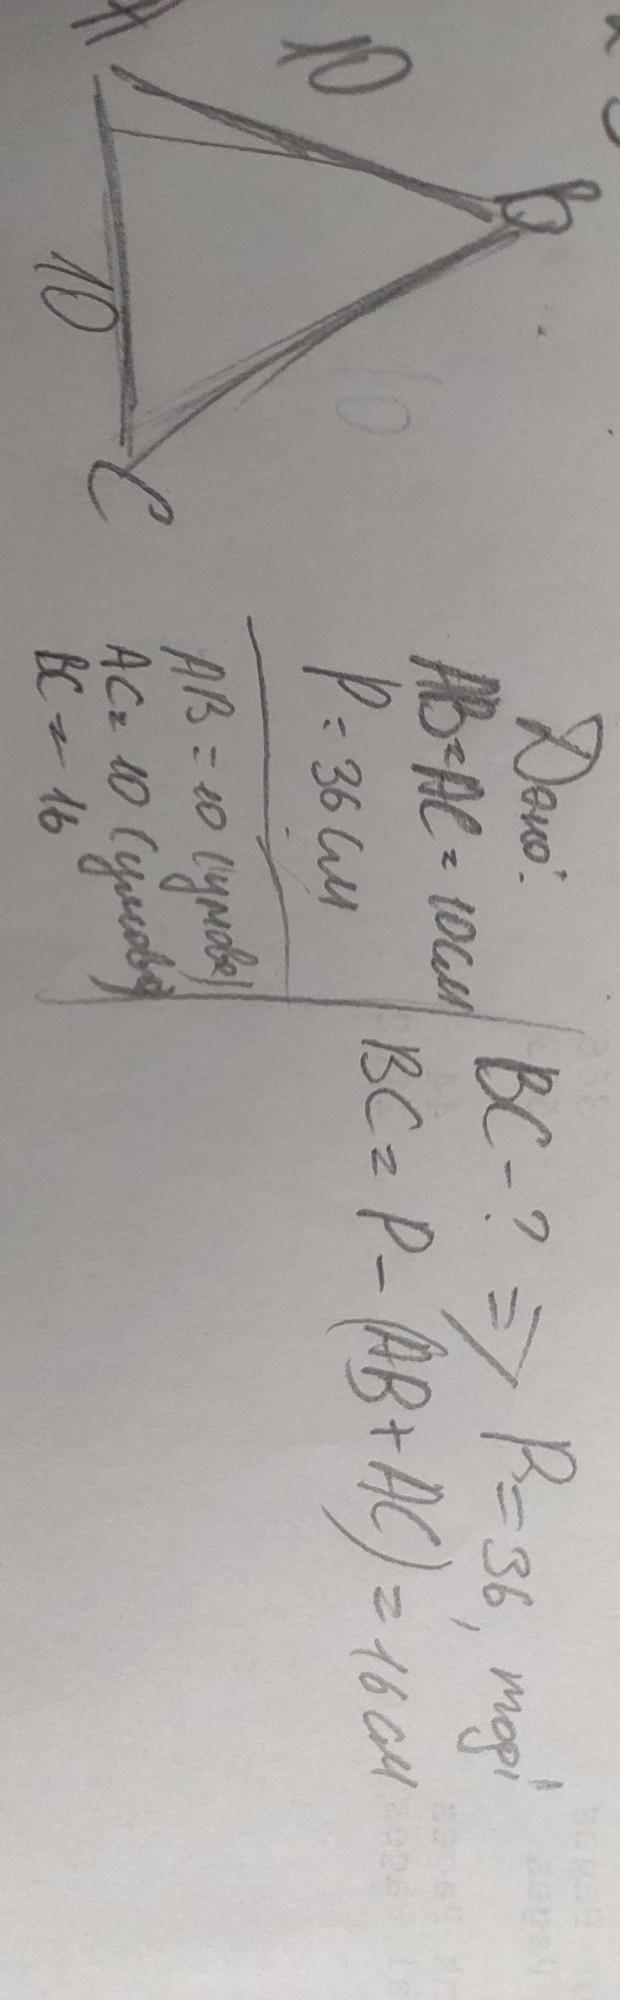 B
10
10
A
10
C
Дано:
AB=AC=10см
P=36см
AB=10 (умова)
AC=10 (умова)
BC=16
BC-? => P=36, тоді
BC=P-(AB+AC)=16см